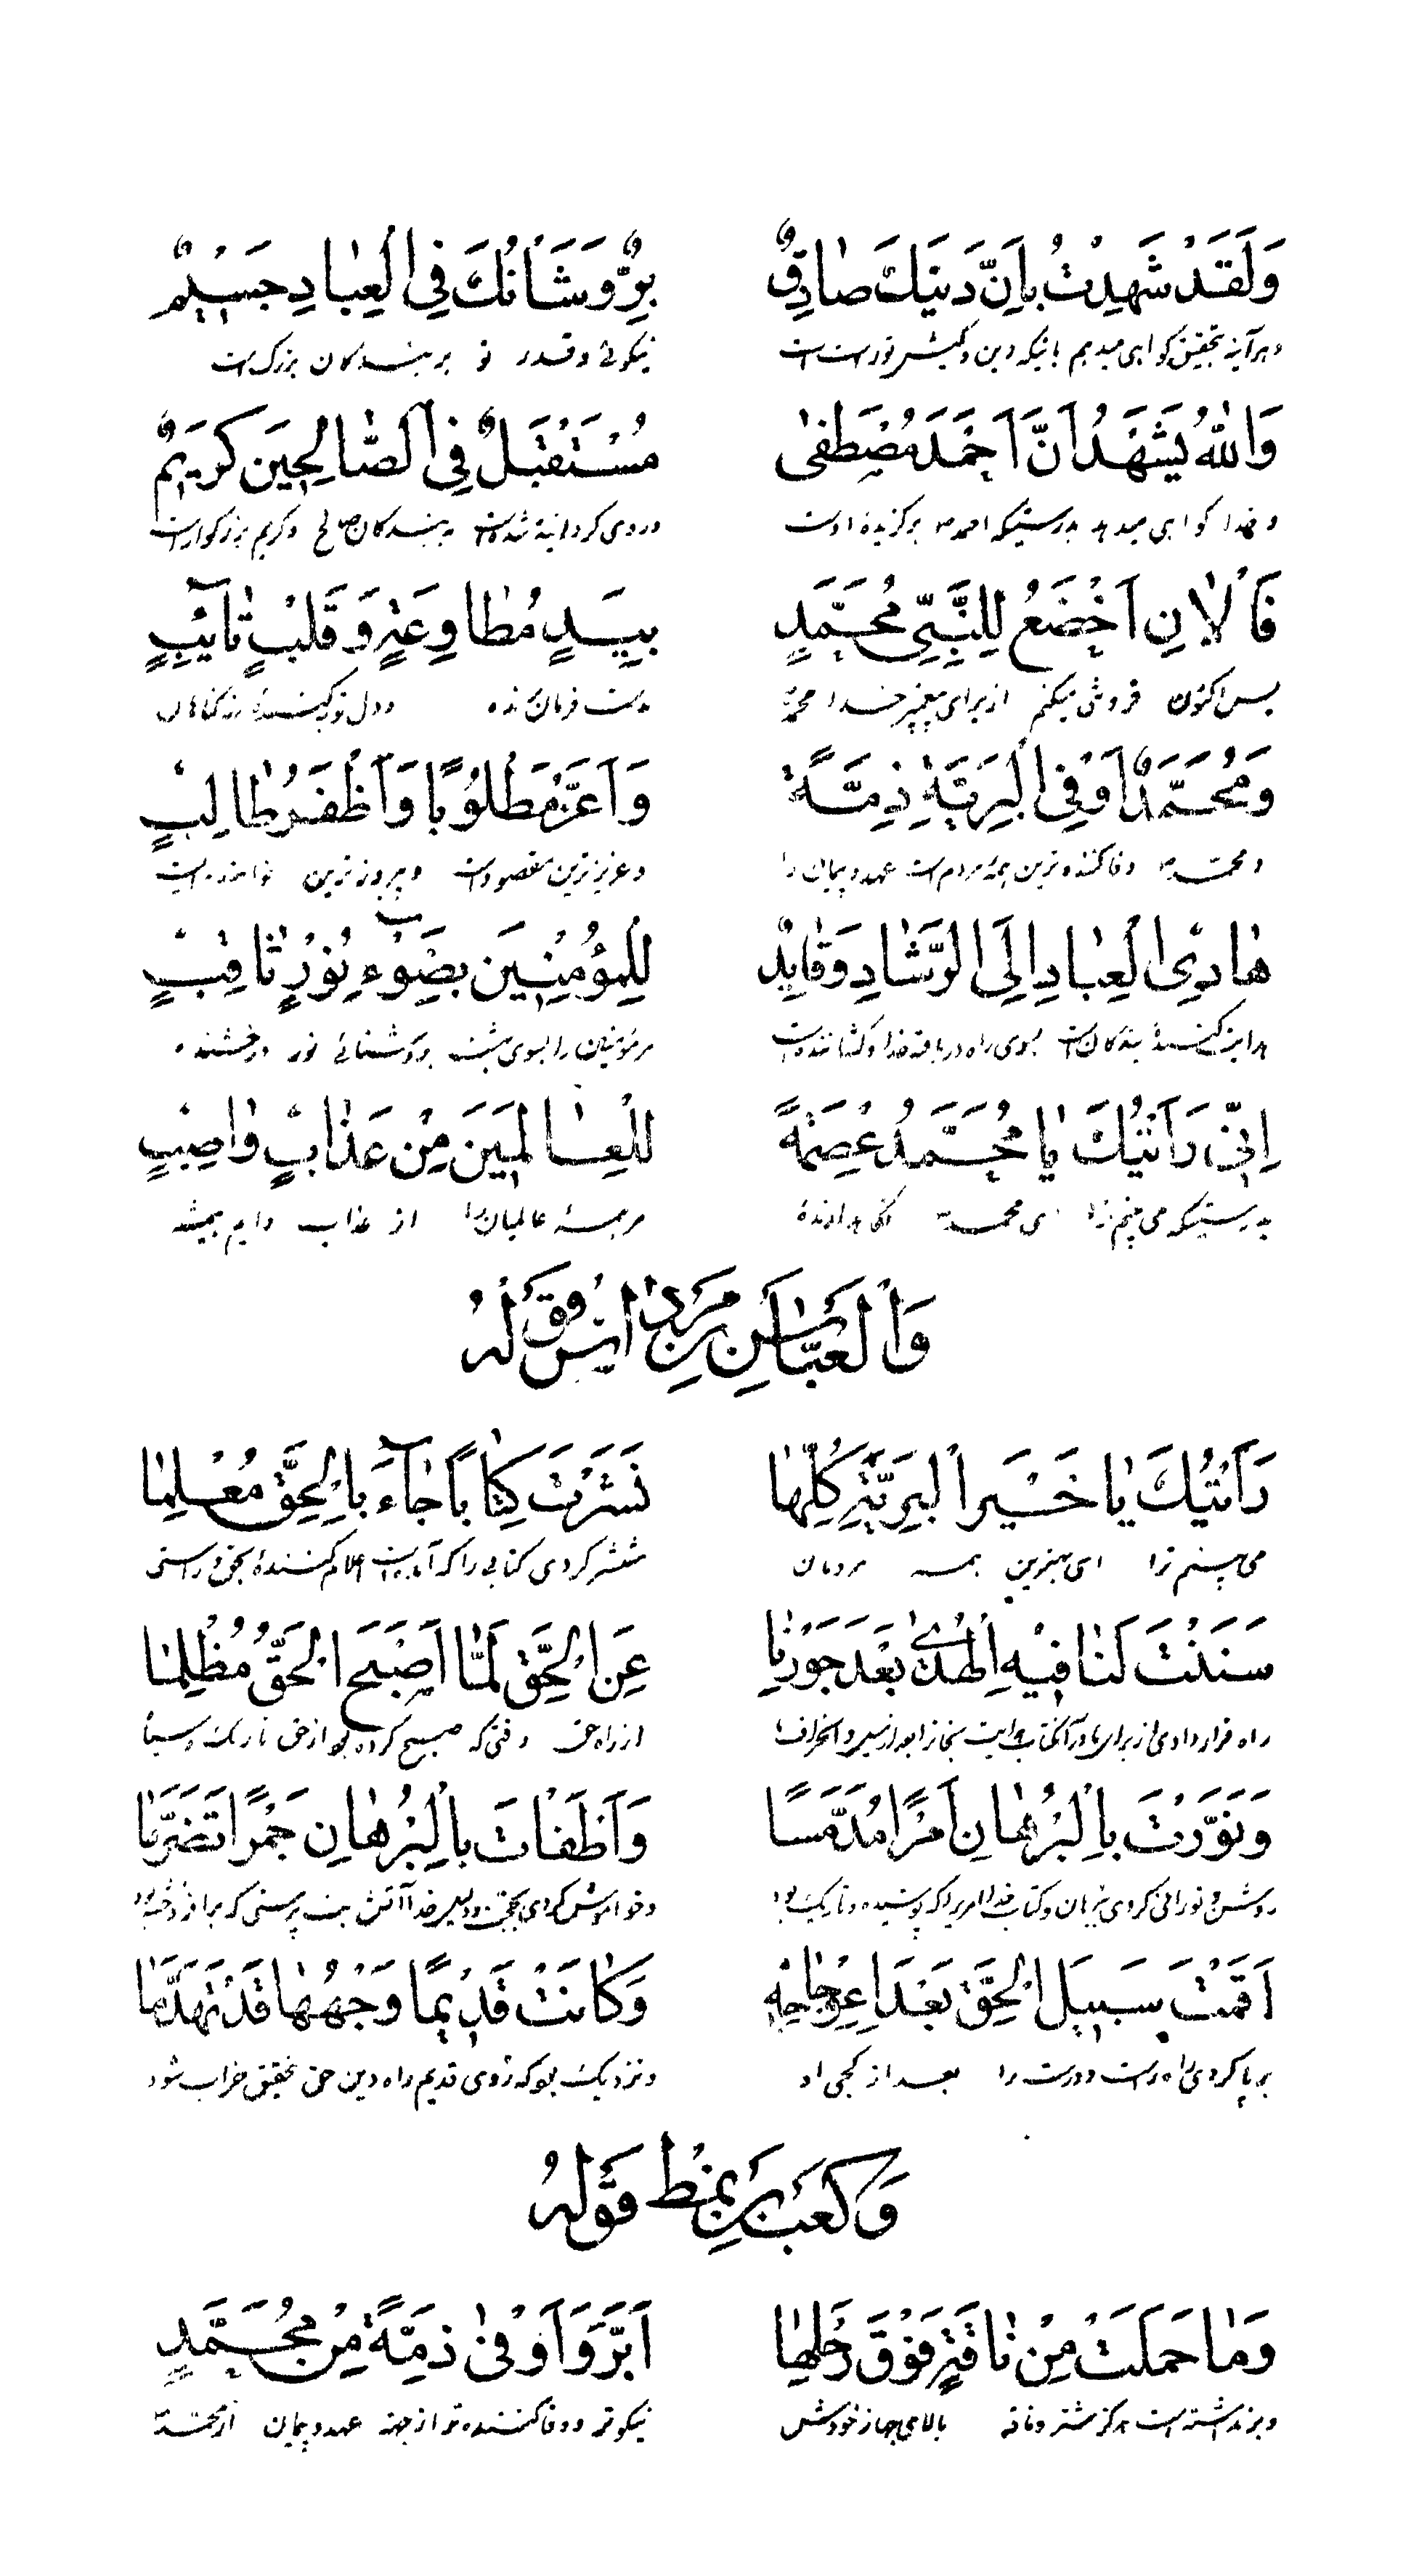 وَلَقَدْ شَهِدْتُ بِاَنَّ دَینَكَ صٰادِقٌ بِرٌّ وَشَاْنُكَ فِی الْعِبٰادِ جَسِیْمٌ
وهرآینه بتحقیق گواهی میدهم بانیکه دین وکیش تو راست است نیکوئی وقدر تو بر بندکان بزرك است
وَاللّٰهُ یَشْهَدُ اَنَّ اَحْمَدَ مُصْطَفٰی مُسْتَقْبَلٌ فِی الصّٰالِحِیَن كَریَمٌ
وخدا گواهی میدهد بدرستیکه احمد برگزیده اوست وروی گردانیده شده است بر بندکان صالح وکریم بزرگوار است
فَاْلاٰنِ اَخْضَعُ لِلنَّبِّیِ مُحَمَّدٍ بِیَدٍ مُطٰاوِعَةٍ وَقَلْبٍ تٰآئِبٍ
پس اکنون فروتنی میکنم از برای پیغمبر خدا محمد بدست فرمان ده ودل توبه کننده از گناهان
وَمُحَمَّدٌ اَوْفِی الْبَرِیَّةِ ذِمَّةً وَاَعَزُّ مَطْلُوبًا وَاَظْفَرُ طٰالِبٍ
ومحمد وفا کننده ترین همه مردم است عهد و پیمان را وعزیزترین مقصود است و پیروزترین خواهنده است
هٰادِی الْعِبٰادِ اِلَی الرَّشٰادِ وَقٰایِدٌ لِلْمُؤْمِنِیَن بِضَوْءِ نُوْرٍ ثٰاقِبٍ
هدایت کننده بندکان است بسوی راه مر مؤمنین را بسوی بهشت بروشنائی نور درخشنده
اِنّی رَاَیْتُكَ یٰا مُحَمَّدُ عِصْمَةً لِلْعٰالَمیَن مِنْ عَذٰابٍ وٰاصِبٍ
بدرستیکه می بینم ترا ای محمد نگاهدارنده مر همه عالمیان را از عذاب دایم همیشه
وَالْعَبّٰاسِ بْنِ مِرْدٰاسٍ قَوْلُهُ
رَاَیْتُكَ یٰا خَیْرَ الْبَرِیَّةِ كُلِّهٰا نَشَرْتَ كِتٰابًا جٰآءَ بِالْحَقِّ مُعْلِمٰا
می بینم ترا ای بهترین همه مردمان منتشر کردی کتابی را که آمده است اعلام کنندهٔ بحق و راستی
سَنَنْتَ لَنٰا فِیْهِ الْهُدٰی بَعْدَ جَوْرِنٰا عَنِ الْحَقِّ لَمّٰا اَصْبَحَ الْحَقُّ مُظْلِمٰا
راه قرار دادی از برای ما در آن کتاب هدایت از راه حق وقتی که صبح کرده بود از حق تاریك وسیاه
وَنَوَّرْتَ بِالْبُرْهٰانِ اَمْرًا مُدَمَّسًا وَاَظْفَاْتَ بِالْبُرْهٰانِ جَمْرًا تَضَرَّمٰا
روشن و نورانی کردی ببرهان وکتاب خدا امریرا که پوشیده وتاریك بود وخواموش کردی بحجت ودلیل خدا آتش بت پرستی که برافروخته بود
اَقَمْتَ سَبِیَل الْحَقِّ بَعْدَ اِعْوِجٰاجِهِ وَكٰانَتْ قَدِیْمًا وَجْهُهٰا قَدْ تَهَدَّمٰا
بر پا کردی راه راست ودرست را بعد از کجی او ونزدیك بود که روی قدیم راه دین حق بتحقیق خراب شود
وَكَعْبِ بْنِ نَمَطٍ قَوْلُهُ
وَمٰا حَمَلَتْ مِنْ نٰاقَةٍ فَوْقَ رَحْلِهٰا اَبَرَّ وَاَوْفٰی ذِمَّةً مِنْ مُحَمَّدٍ
وبرنداشته است هرگز شتر وناقه بالای جهاز خودش نیکوتر ووفا کننده تر از جهة عهد وپیمان از محمد